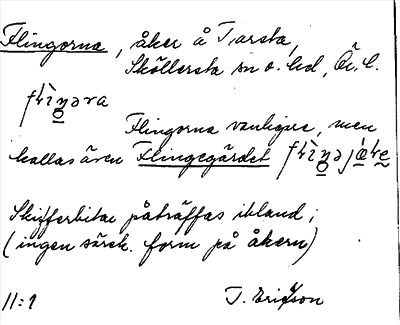 Flingorna, åker å Tarsta,
Sköllersta sn o. hd, Ör. l.
Flingorna vanligare, men
kallas även Flingegärdet
Skifferbitar påträffas ibland;
(ingen särsk. form på åkern)
11:1 T. Ericsson